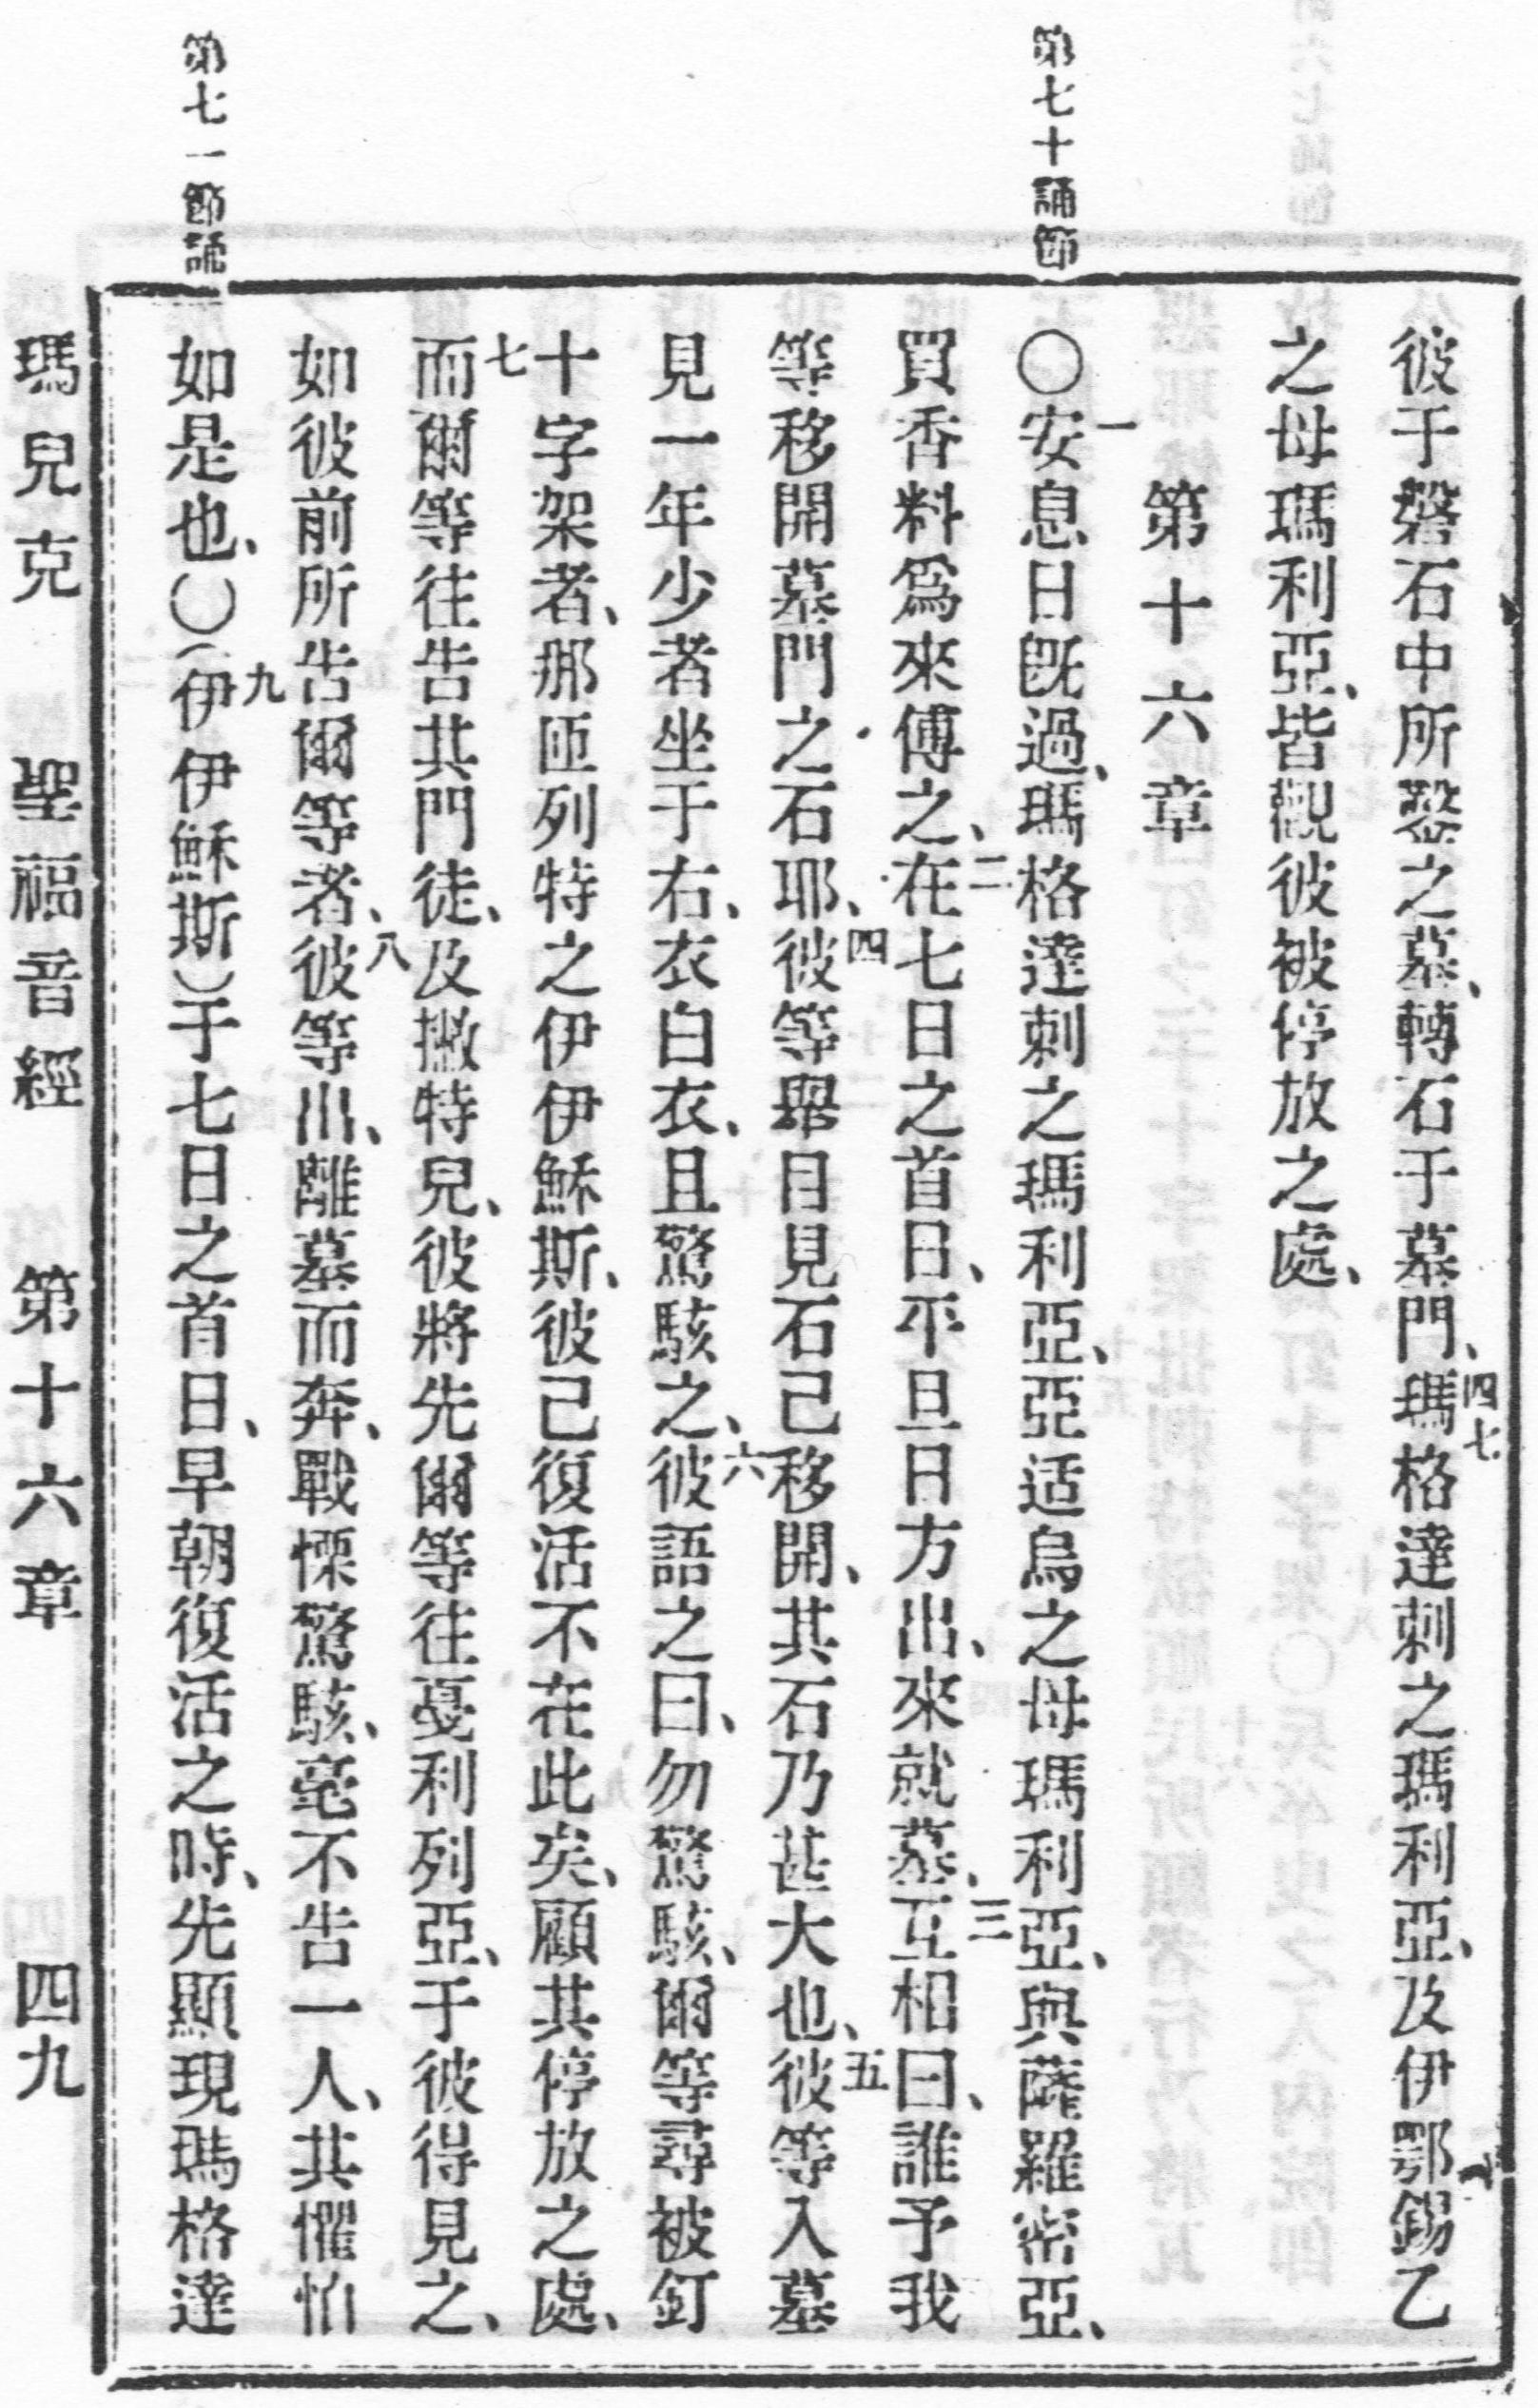 彼于磐石中所鑿之墓、轉石于墓門、四七瑪格達剌之瑪利亞、及伊鄂錫乙
之母瑪利亞、皆觀彼被停放之處、
第十六章
第七十誦節
〇一安息日旣過、瑪格達剌之瑪利亞、亞适烏之母瑪利亞、與薩羅密亞、
買香料爲來傅之、二在七日之首日、平旦日方出、來就墓、三互相曰、誰予我
等移開墓門之石耶、四彼等舉目見石己移開、其石乃甚大也、五彼等入墓
見一年少者坐于右、衣白衣、且驚駭之、六彼語之曰、勿驚駭、爾等尋被釘
十字架者、那匝列特之伊伊穌斯、彼己復活不在此矣、顧其停放之處、
七而爾等往告其門徒、及撇特兒、彼將先爾等往戞利列亞、于彼得見之、
如彼前所告爾等者、八彼等出、離墓而奔、戰慄驚駭、毫不告一人、其懼怕
第七一節誦
如是也、〇九(伊伊穌斯)于七日之首日、早朝復活之時、先顯現瑪格達
瑪兒克 聖福音經 第十六章 四九